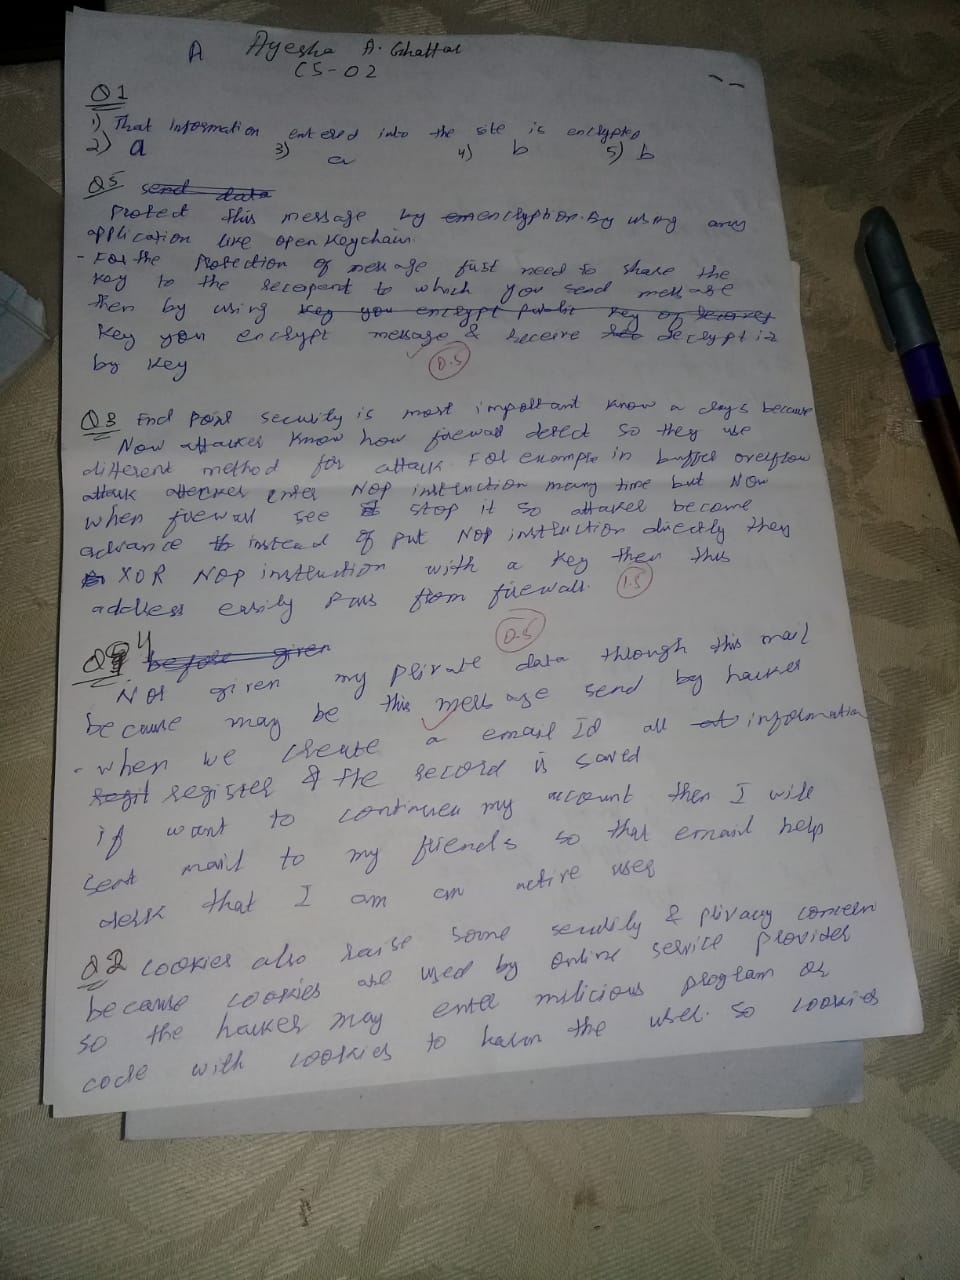 A Ayesha A. Ghaffar
CS-02
Q1
1) That Information entered into the site is encrypted
2) a 3) a 4) b 5) b
Q5 send data
Protect this message by em encryption. By using any
application like open Keychain.
- For the Protection of message fust need to share the
key to the recepent to which you send message
then by using key you encrypt public key of
key you encrypt message & receive decrypt it
by key
0.5
Q3 End Point security is most important know a days because
Now attacker know how firewall detect so they use
different method for attack. For example in buffer overflow
attack attecker enter NOP instruction many time but Now
when firewall see stop it so attaker become
advance instead of put Nop instruction directly they
XOR NOP instruction with a key then this
address easily Pass from firewall.
1.5
0.5
Q4 before given
Not given my private data through this mail
because may be this message send by hacker
- when we create a email Id all at information
regit register & the record is saved
if want to continuen my account then I will
sent mail to my friends so that email help
desk that I am an active user
Q2 cookies also raise some security & privacy concern
because cookies are used by online service provider
so the hacker may enter milicious program or
code with cookies to harm the user. so cookies